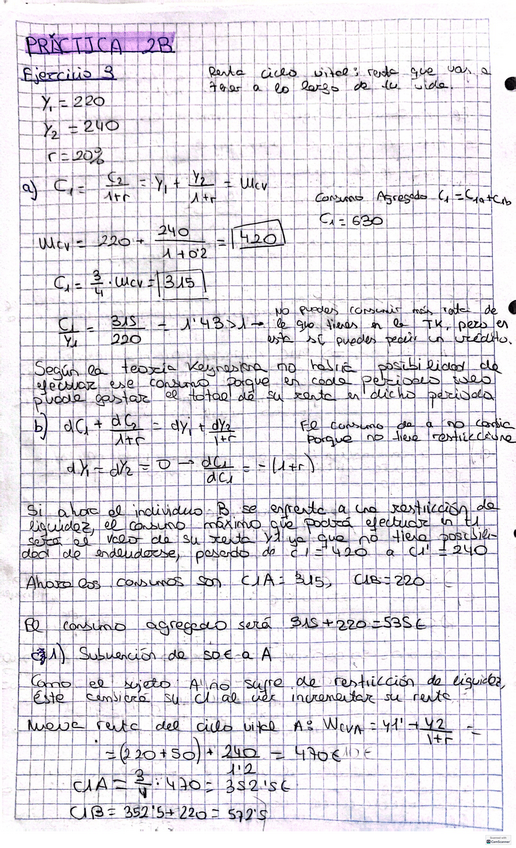 PRÁCTICA 2B
Ejercicio 3
Renta ciclo vital: renta que vas a
tener a lo largo de tu vida.
Y1 = 220
Y2 = 240
r = 20%
a) C1 = C2/1+r = Y1 + Y2/1+r = Wcv
Consumo Agregado C1 = C1a + C1b
C1 = 630
Wcv = 220 + 240/1+0'2 = 420
C1 = 3/4 · Wcv = 315
C1/Y1 = 315/220 = 1'43 > 1 →
No puedes consumir más renta de
lo que tienes en la TK, pero en
esta sí puedes pedir un crédito.
Según la teoría Keynesiana no habría posibilidad de
efectuar ese consumo porque en cada periodo solo
puede gastar el total de su renta en dicho periodo
b) dC1 + dC2/1+r = dY1 + dY2/1+r
El consumo de a no cambia
porque no tiene restricciones
dY1 = dY2 = 0 → dC1/dC1 = -(1+r)
Si ahora el individuo B se enfrenta a una restricción de
liquidez, el consumo máximo que podrá efectuar en t1
será el valor de su renta Y1 ya que no tiene posibili-
dad de endeudarse, pasando de C1 = 420 a C1' = 240
Ahora los consumos son C1A = 315, C1B = 220
El consumo agregado será 315 + 220 = 535€
1) Subvención de 50€ a A
Como el sujeto A no sufre de restricción de liquidez,
éste cambiará su C1 al ver incrementar su renta
Nueva renta del ciclo vital A: WcvA = Y1' + Y2/1+r =
= (220+50) + 240/1'2 = 470€
C1A = 3/4 · 470 = 352'5€
C1B = 352'5 + 220 = 572'5